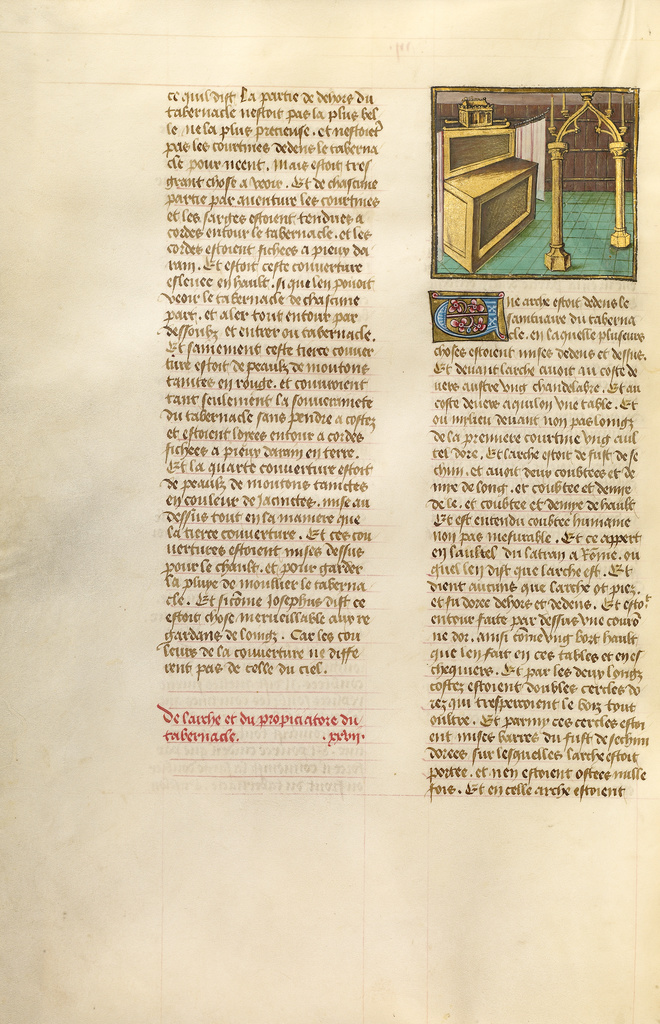 ce quil dist La partie de dehors du
tabernacle nestoit pas la plus bel
le ne la plus precieuse. et nestoiēt
pas les courtines dedens le taberna
cle pour neent. Mais estoit tres
grant chose a veoir. Et de chascune
partie par aventure les courtines
et les sarges estoient tendues a
cordes entour le tabernacle. et les
cordes estoient fichees a pieux da
rain. Et estoit ceste couverture
eslevee en hault. si que len pouoit
veoir le tabernacle de chascune
part. et aler tout entour par
dessoubz et entrer ou tabernacle.
Et sainement ceste tierce couver
ture estoit de peaulx de moutons
taintes en rouge. et couvroient
tant seulement la souveraineté
du tabernacle sans pendre a costez
et estoient lyees entour a cordes
fichees a pieux darain en terre.
Et la quarte couverture estoit
de peaulx de moutons tainctes
en couleur de Jacinctes. mise au
dessus tout en la maniere que
la tierce couverture. Et ces cou
vertures estoient mises dessus
pour le chault. et pour garder
la pluye de moullier le taberna
cle. Et sicōme Josephus dist ce
estoit chose merveillable aux re
gardans de loingz. Car les cou
leurs de la couverture ne diffe
rent pas de celle du ciel.
De larche et du propiciatore du
tabernacle. .xxvii.
Une arche estoit dedens le
sanctuaire du taberna
cle. en laquelle pluseurs
choses estoient mises dedens et dessus.
Et devant larche avoit au coste de
vers austre ung chandelabre. Et au
coste devers aquilon une table. Et
ou milieu devant non pas loingz
de la premiere courtine ung aul
tel dore. Et larche estoit de fust de se
chim. et avoit deux coubtees et de
mye de long. et coubtee et demye
de le. et coubtee et demye de hault
Et est entendu coubtee humaine
non pas mesurable. Et ce appert
en laultel du latran a Rōme. ou
quel len dist que larche est. Et
dient aucuns que larche ot piez.
et fu doree dehors et dedens. Et estoiᵗ
entour faite par dessus une courō
ne dor. ainsi cōme ung bort hault
que len fait en ces tables et en es
chequiers. Et par les deux longz
costez estoient doubles cercles do
rez qui tresperçoient le boiz tout
oultre. Et parmy ces cercles estoi
ent mises barres du fust de sechim
dorees sur lesquelles larche estoit
portee. et nen estoient ostees nulle
fois. Et en celle arche estoient